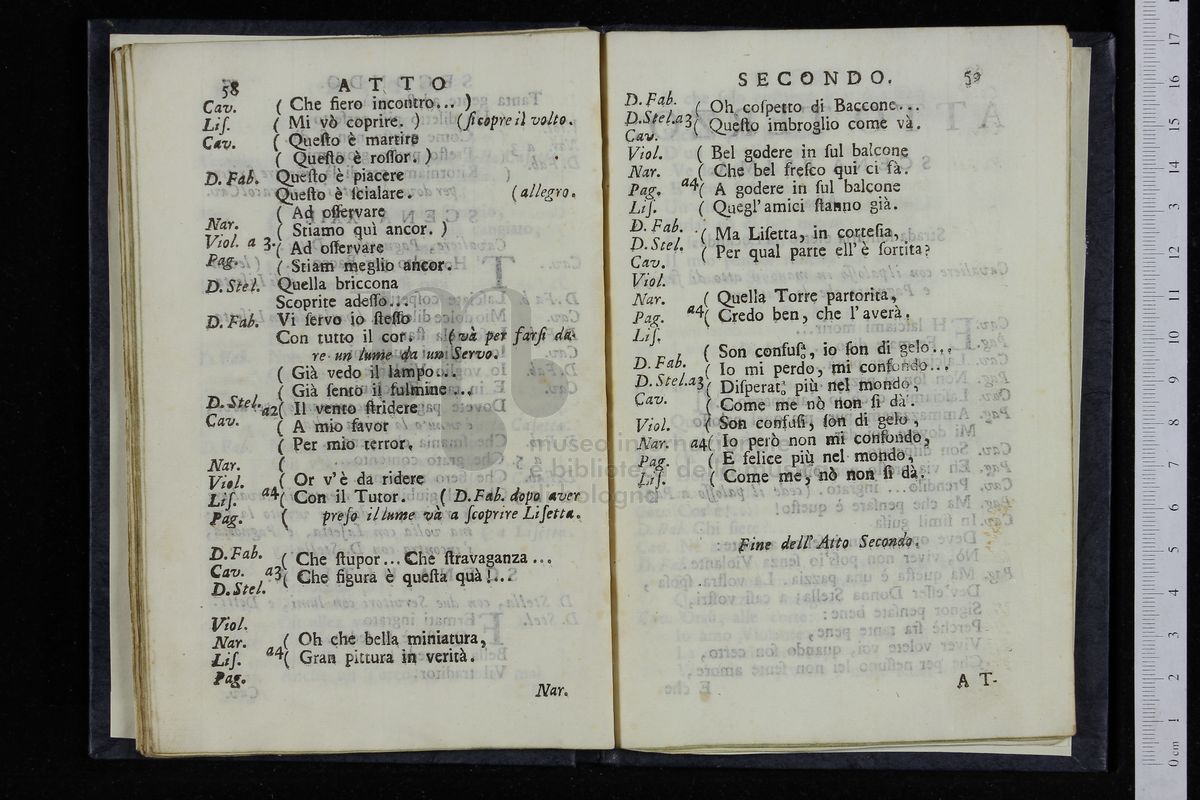 58 ATTO
Cav. ( Che fiero incontro... )
Liſ. ( Mi vò coprire. ) (ſi copre il volto.
Cav. ( Queſto è martire
( Queſto è roſſor. )
D. Fab. Queſto è piacere
Queſto è ſcialare. (allegro.
( Ad oſſervare
Nar. ( Stiamo quì ancor. )
Viol. a 3. ( Ad oſſervare
Pag. ( Stiam meglio ancor.
D. Stel. Quella briccona
Scoprite adeſſo...
D. Fab. Vi ſervo io ſteſſo
Con tutto il cor. (và per farſi da-
re un lume da un Servo.
( Già vedo il lampo...
( Già ſento il fulmine...
D. Stel. a2( Il vento ſtridere
Cav. ( A mio favor
( Per mio terror.
Nar. (
Viol. ( Or v'è da ridere
Liſ. a4( Con il Tutor. ( D. Fab. dopo aver
Pag. ( preſo il lume và a ſcoprire Liſetta.
D. Fab. ( Che ſtupor... Che ſtravaganza...
Cav. a3( Che figura è queſta quà!...
D. Stel.
Viol.
Nar. ( Oh che bella miniatura,
Liſ. a4( Gran pittura in verità.
Pag.
Nar.
SECONDO. 59
D. Fab. ( Oh coſpetto di Baccone...
D. Stel. a3( Queſto imbroglio come và.
Cav.
Viol. ( Bel godere in ſul balcone
Nar. ( Che bel freſco qui ci fa.
Pag. a4( A godere in ſul balcone
Liſ. ( Quegl'amici ſtanno già.
D. Fab. ( Ma Liſetta, in corteſia,
D. Stel. ( Per qual parte ell'è ſortita?
Cav.
Viol.
Nar. ( Quella Torre partorita,
Pag. a4( Credo ben, che l'averà.
Liſ.
( Son confuſ, io ſon di gelo...
D. Fab. ( Io mi perdo, mi confondo...
D. Stel. a3( Diſperat più nel mondo,
Cav. ( Come me nò non ſi dà.
Viol. ( Son confuſi, ſon di gelo,
Nar. a4( Io però non mi confondo,
Pag. ( E felice più nel mondo,
Liſ. ( Come me, nò non ſi dà.
Fine dell' Atto Secondo.
AT-
museo internazionale
e biblioteca della musica
bologna